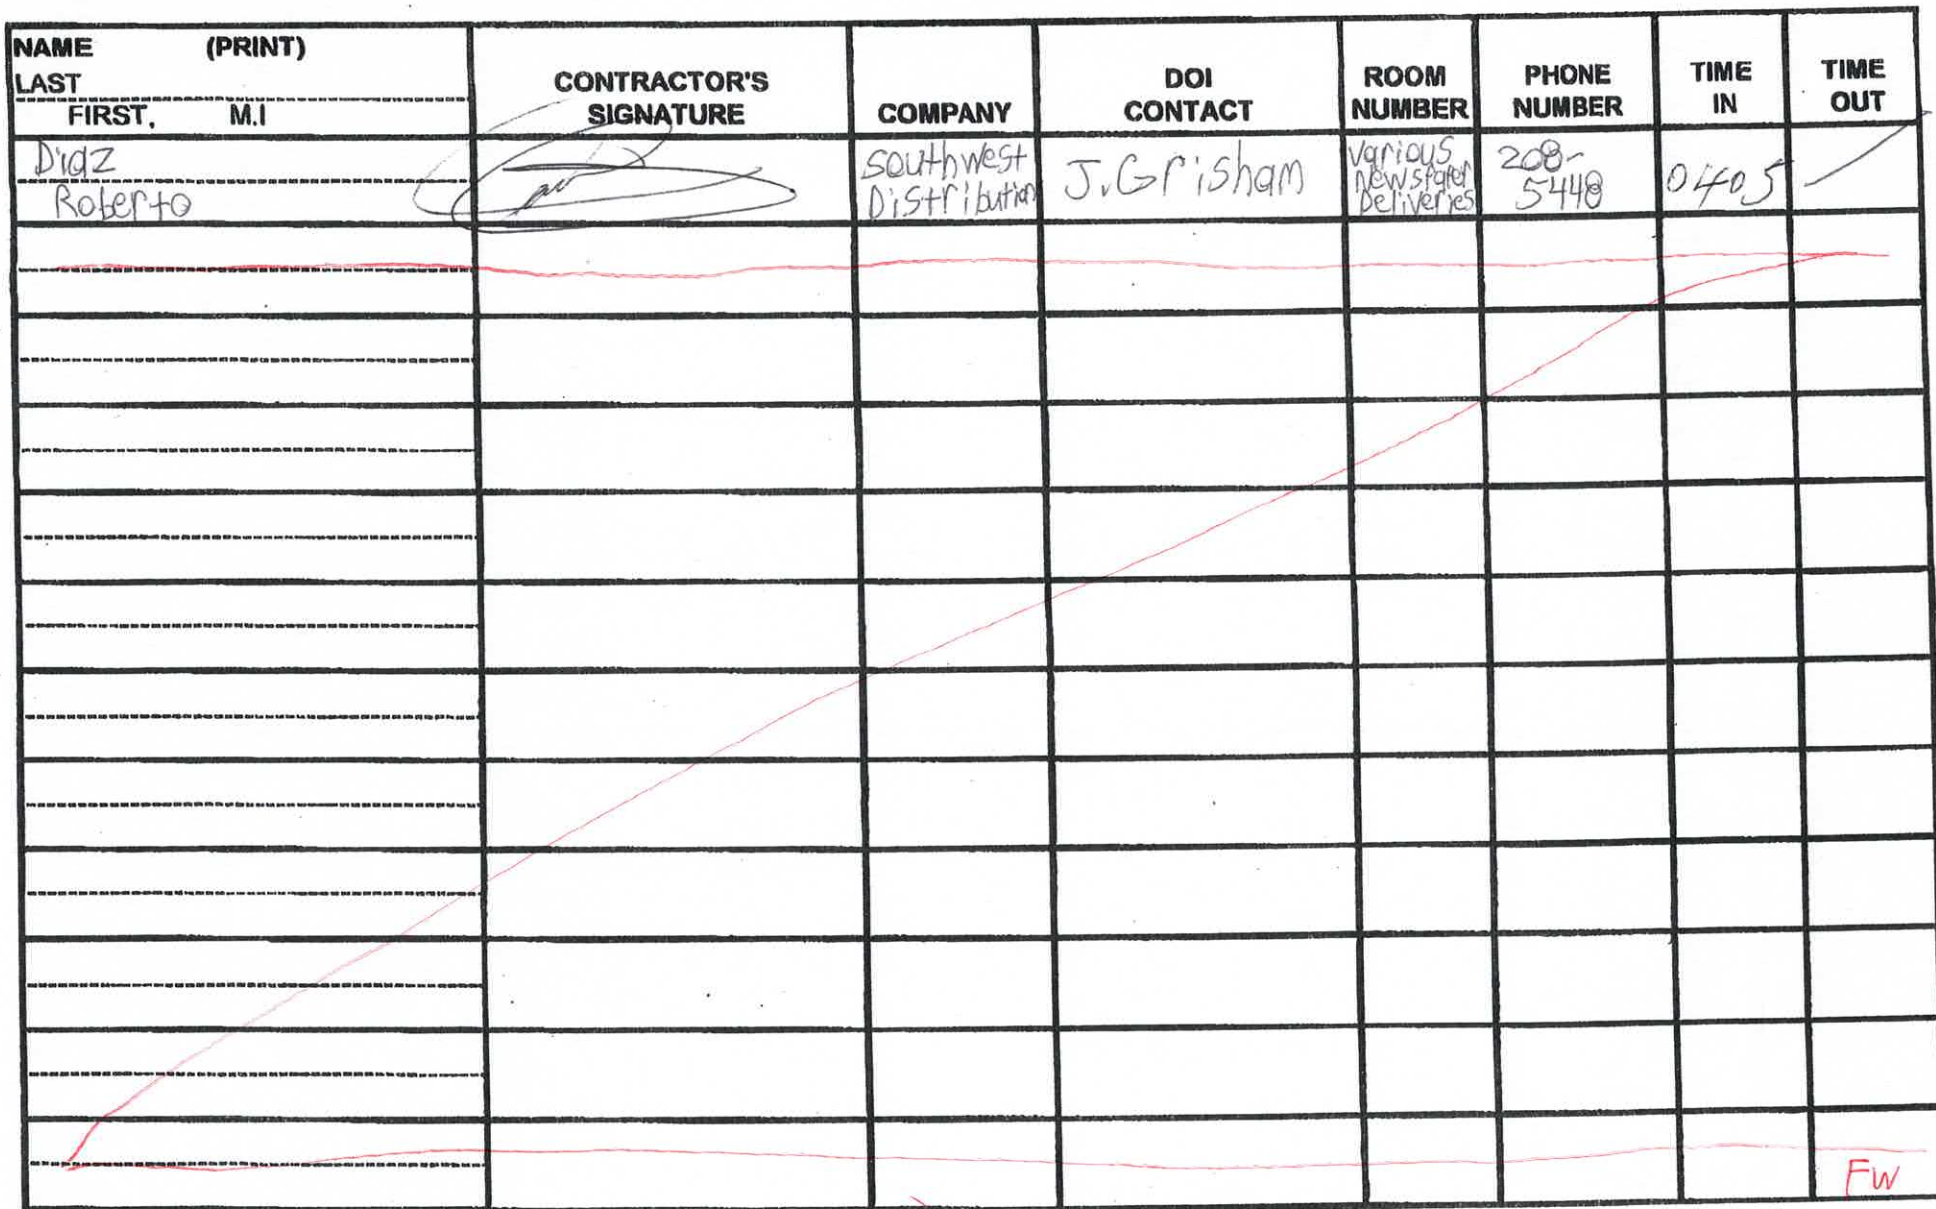 NAME (PRINT)
LAST
FIRST, M.I
CONTRACTOR'S
SIGNATURE
COMPANY
DOI
CONTACT
ROOM
NUMBER
PHONE
NUMBER
TIME
IN
TIME
OUT
Diaz
Roberto
Southwest
Distribution
J. Grisham
Various
Newspaper
Deliveries
208-
5448
0405
FW